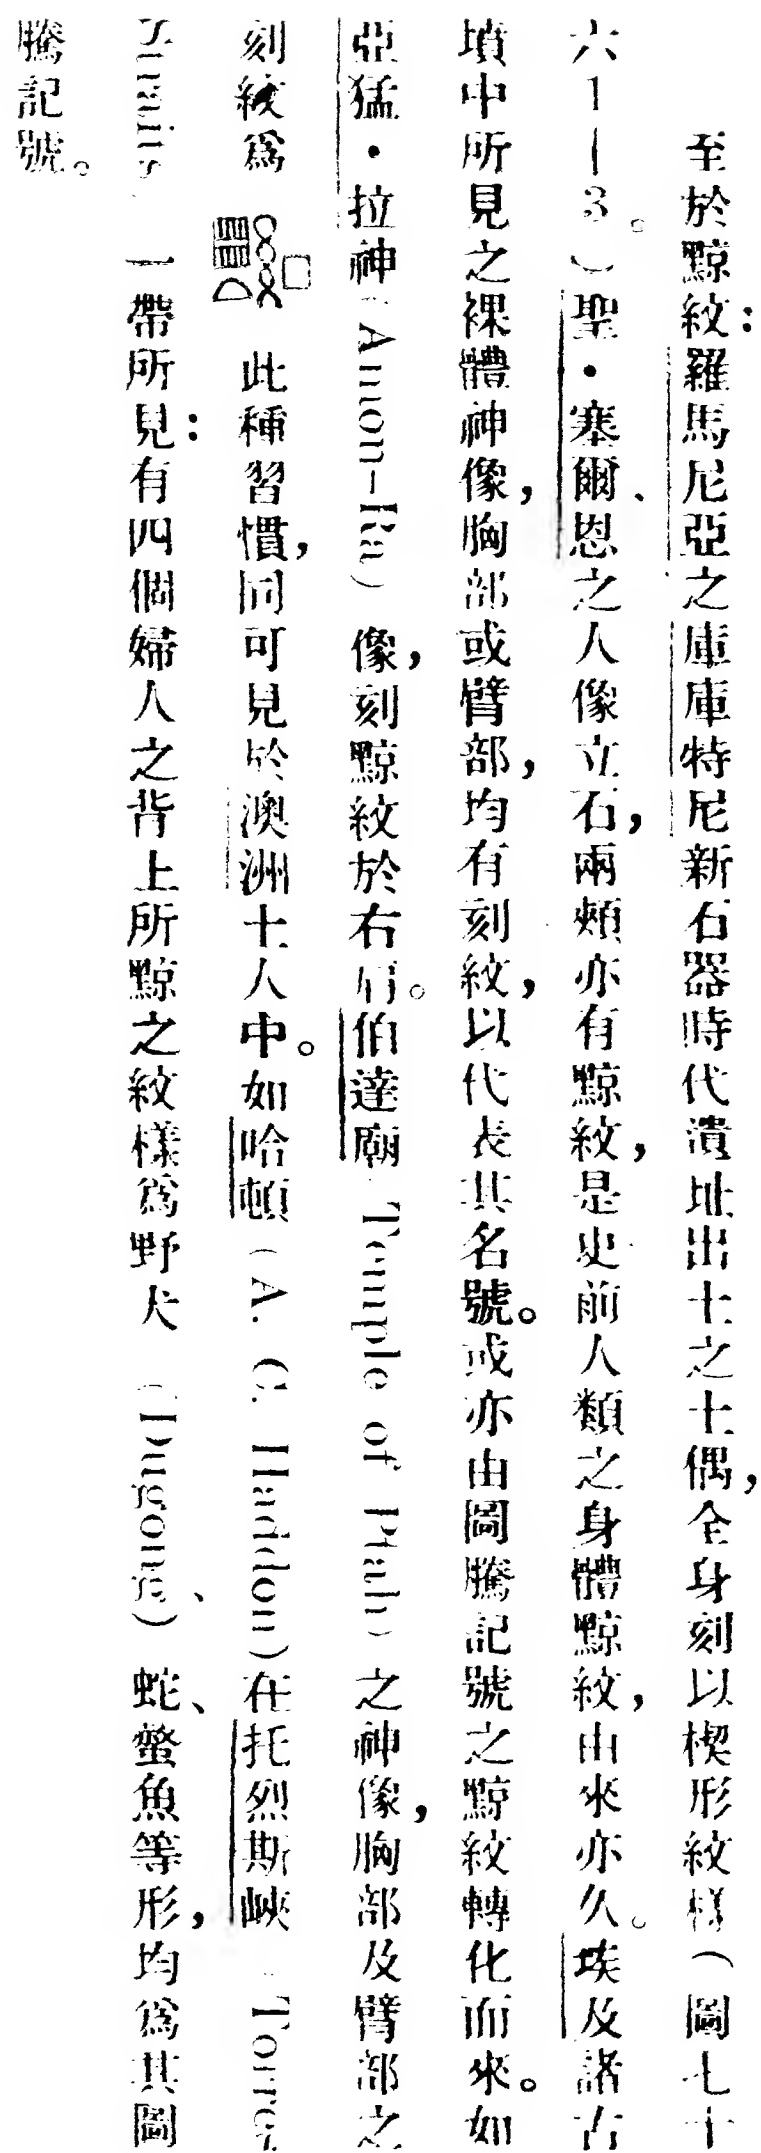 至於黥紋：羅馬尼亞之庫庫特尼新石器時代遺址出土之土偶，全身刻以楔形紋樣（圖七十
六1—3）。聖·塞爾、恩之人像立石，兩頰亦有黥紋，是史前人類之身體黥紋，由來亦久。埃及諸古
墳中所見之裸體神像，胸部或臂部，均有刻紋，以代表其名號。或亦由圖騰記號之黥紋轉化而來。如
亞猛·拉神（Amon-Ra）像，刻黥紋於右肩。伯達廟（Temple of Ptah）之神像，胸部及臂部之
刻紋爲 此種習慣，同可見於澳洲土人中。如哈頓（A. C. Haddon）在托烈斯峽（Torres
Straits）一帶所見：有四個婦人之背上所黥之紋樣爲野犬（Dugong）、蛇、鱉魚等形，均爲其圖
騰記號。